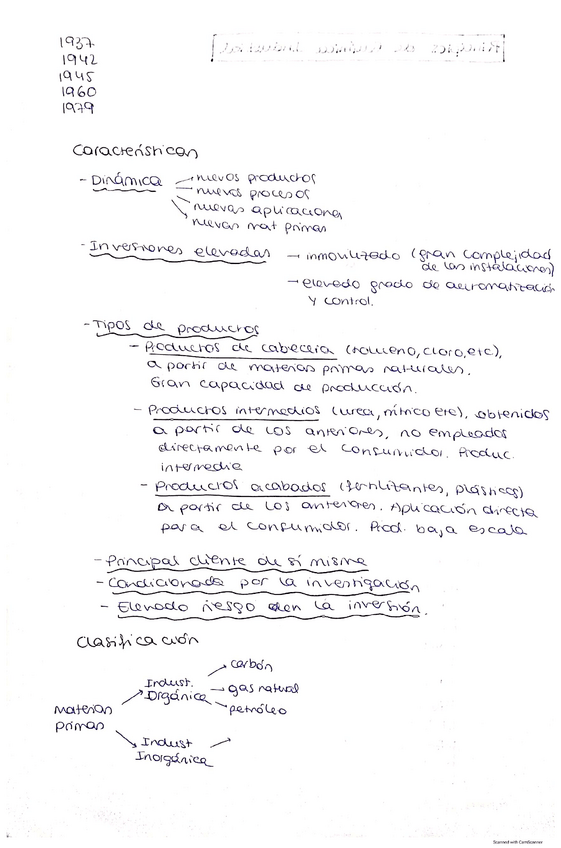 1937
1942
1945
1960
1979
Características
- Dinámica
nuevos productos
nuevos procesos
nuevas aplicaciones
nuevas mat primas
- Inversiones elevadas → inmovilizado (gran complejidad
de las instalaciones)
→ elevado grado de automatización
y control.
- Tipos de productos
- Productos de cabecera (tolueno, cloro, etc),
a partir de materias primas naturales.
Gran capacidad de producción.
- Productos intermedios (urea, nítrico etc), obtenidos
a partir de los anteriores, no empleados
directamente por el consumidor. Produc.
intermedia
- Productos acabados (fertilizantes, plásticos)
a partir de los anteriores. Aplicación directa
para el consumidor. Prod. baja escala
- Principal cliente de sí misma
- Condicionada por la investigación
- Elevado riesgo en la inversión.
Clasificación
Materias
primas
Indust.
Orgánica
carbón
gas natural
petróleo
Indust
Inorgánica
Scanned with CamScanner